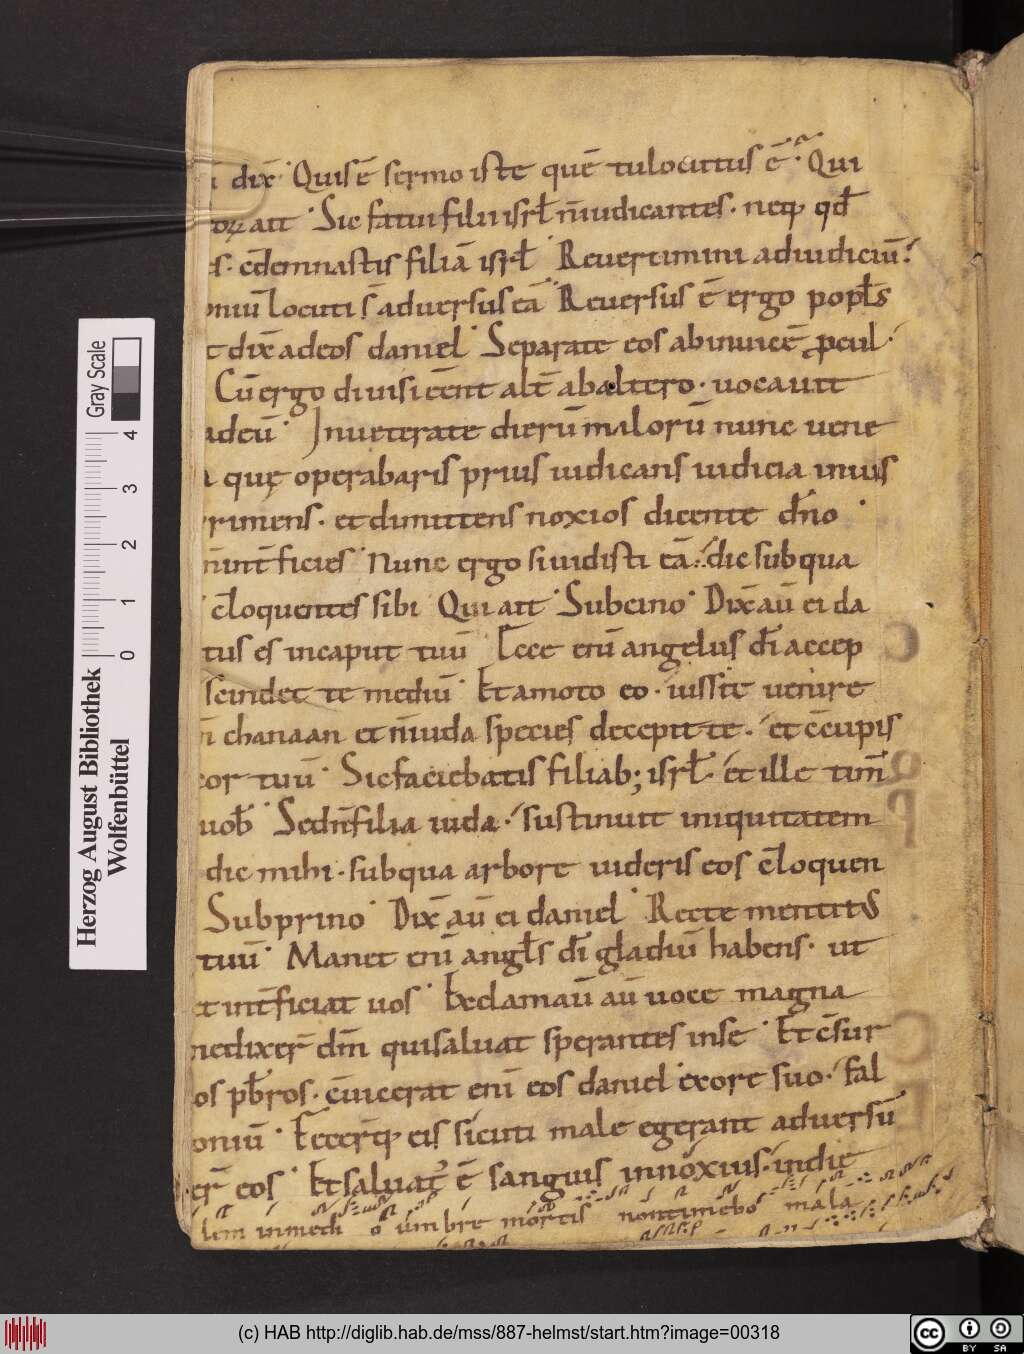 dix̄ · Quis ē sermo iste quē tu locutus ē · Qui
ait · Sic fatui filii isrł n̄ iudicantes · neqꝫ qđ
c̄demnastis filiā isrł · Reuertimini ad iudiciū ·
locuti s̄ aduersus eā · Reuersus ē ergo poplꝰs
t dix̄ ad eos daniel · Separate eos abinuicē ꝓcul ·
Cū ergo diuisi eēnt alt̄ ab altero · uocauit
eū · Inueterate dierū malorū nunc uene
quę operabaris prius iudicans iudicia inius
rimens · et dimittens noxios dicente dn̄o ·
int̄ficies · Nunc ergo si uidisti eā · dic sub qua
c̄loquentes sibi · Qui ait · Sub cino · Dix̄ aū ei da
tus es in caput tuū · Ecce enī angelus dī accep
scindet te mediū · Et amoto eo · iussit uenire
chanaan et n̄ iuda species decepit te · et c̄cupis
cor tuū · Sic faciebatis filiabꝫ isrł · et illę tim̄
uob̄ · Sed n̄ filia iuda · sustinuit iniquitatem
dic mihi · sub qua arbore uideris eos c̄loquen
Sub prino · Dix̄ aū ei daniel · Recte mentitꝰs
tuū · Manet enī angłs dī gladiū habens · ut
et int̄ficiat uos · Exclamaū aū uoce magna
nedixer̄ dm̄ qui saluat sperantes in se · Et c̄sur
os pb̄ros · c̄uicerat enī eos daniel ex ore suo · fal
oniū · Fecer̄qꝫ eis sicuti male egerant aduersū
er̄ eos · Et saluatꝰ ē sanguis innoxius · in die
Herzog August Bibliothek
Wolfenbüttel
Gray Scale
0 1 2 3 4
in medi o umbre mortis non timebo mala
(c) HAB http://diglib.hab.de/mss/887-helmst/start.htm?image=00318
cc BY SA